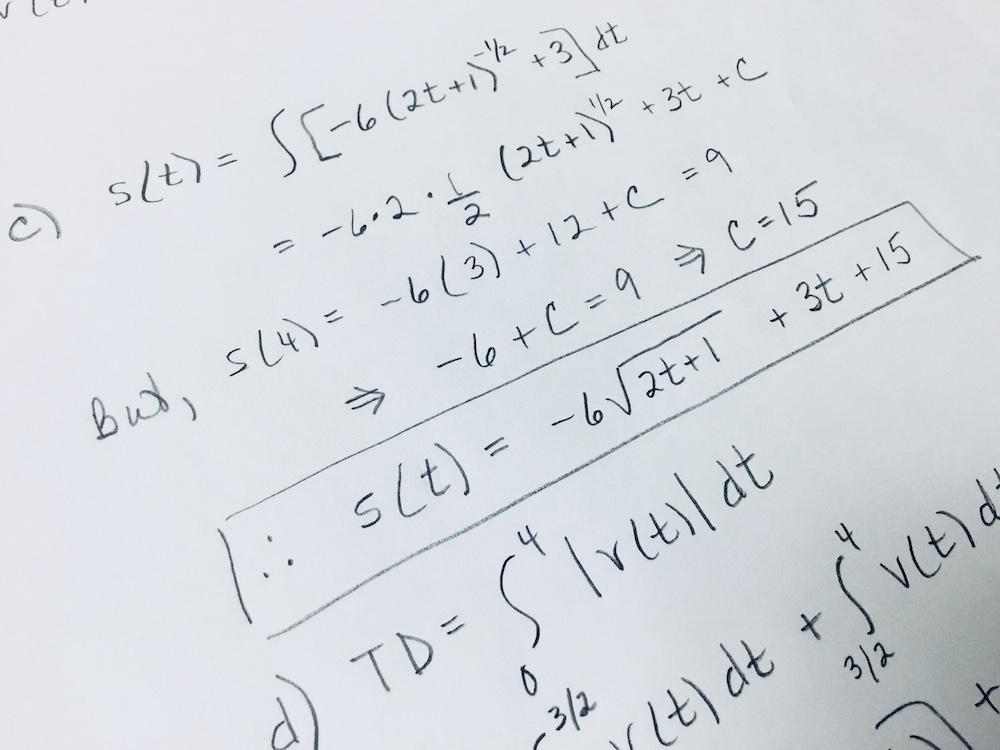 c) s(t) = ∫[-6(2t+1)^-1/2 +3]dt
= -6·2·1/2 (2t+1)^1/2 +3t +C
But, s(4) = -6(3) + 12 + C = 9
⇒ -6 + C = 9 ⇒ C=15
∴ s(t) = -6√2t+1 + 3t +15
d) TD = ∫_0^4 |v(t)|dt
3/2 v(t) dt + ∫_3/2^4 v(t)d